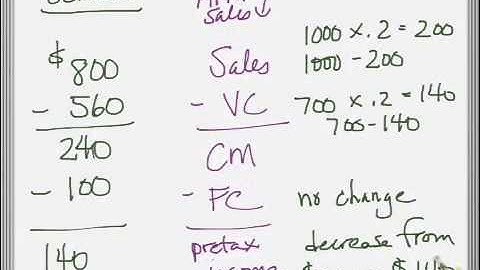 sales ↓
1000 x .2 = 200
$ 800 Sales 1000 - 200
- 560 - VC 700 x .2 = 140
700 - 140
240 CM
- 100 - FC no change
140 pretax decrease from